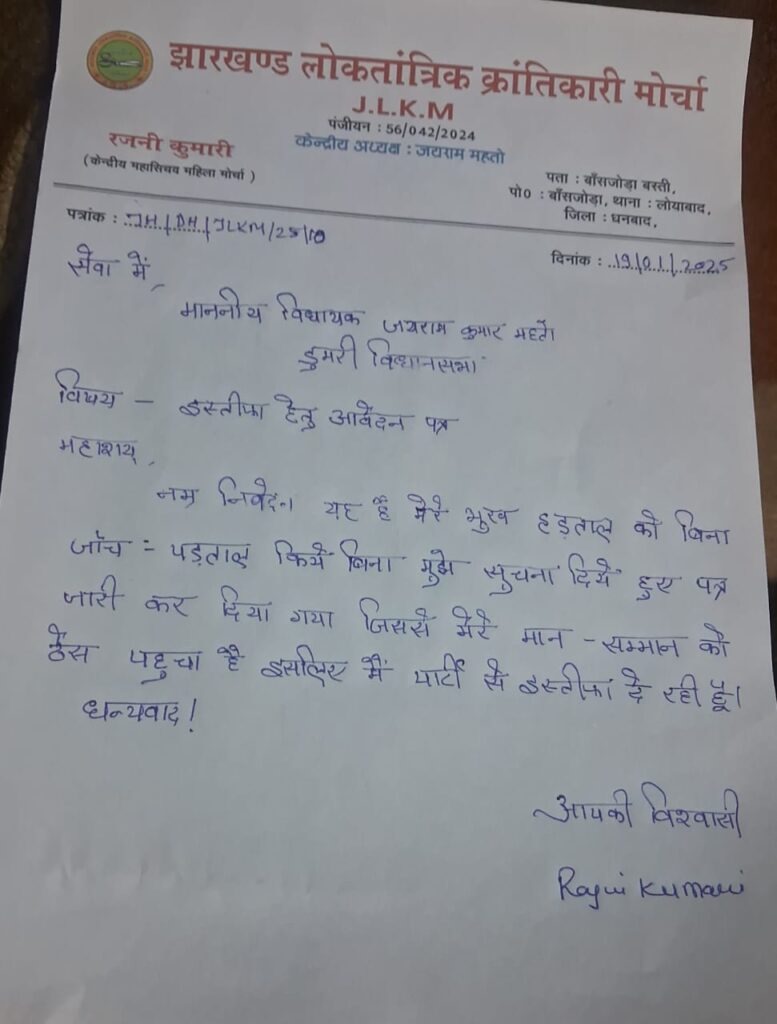 झारखण्ड लोकतांत्रिक क्रांतिकारी मोर्चा
J.L.K.M
पंजीयन : 56/042/2024
केन्द्रीय अध्यक्ष : जयराम महतो
रजनी कुमारी
(केन्द्रीय महासिचव महिला मोर्चा )
पता : बाँसजोड़ा बस्ती,
पो0 : बाँसजोड़ा, थाना : लोयाबाद,
जिला : धनबाद,
पत्रांक : JH/DH/JLKM/25/10
दिनांक : 19/01/2025
सेवा में,
माननीय विधायक जयराम कुमार महतो
डुमरी विधानसभा
विषय - इस्तीफा हेतु आवेदन पत्र
महाशय,
नम्र निवेदन यह है मेरे भुख हड़ताल को बिना
जाँच - पड़ताल किये बिना मुझे सुचना दिये हुए पत्र
जारी कर दिया गया जिससे मेरे मान - सम्मान को
ठेस पहुचा है इसलिए मैं पार्टी से इस्तीफा दे रही हूँ।
धन्यवाद!
आपकी विश्वासी
Rajni Kumari